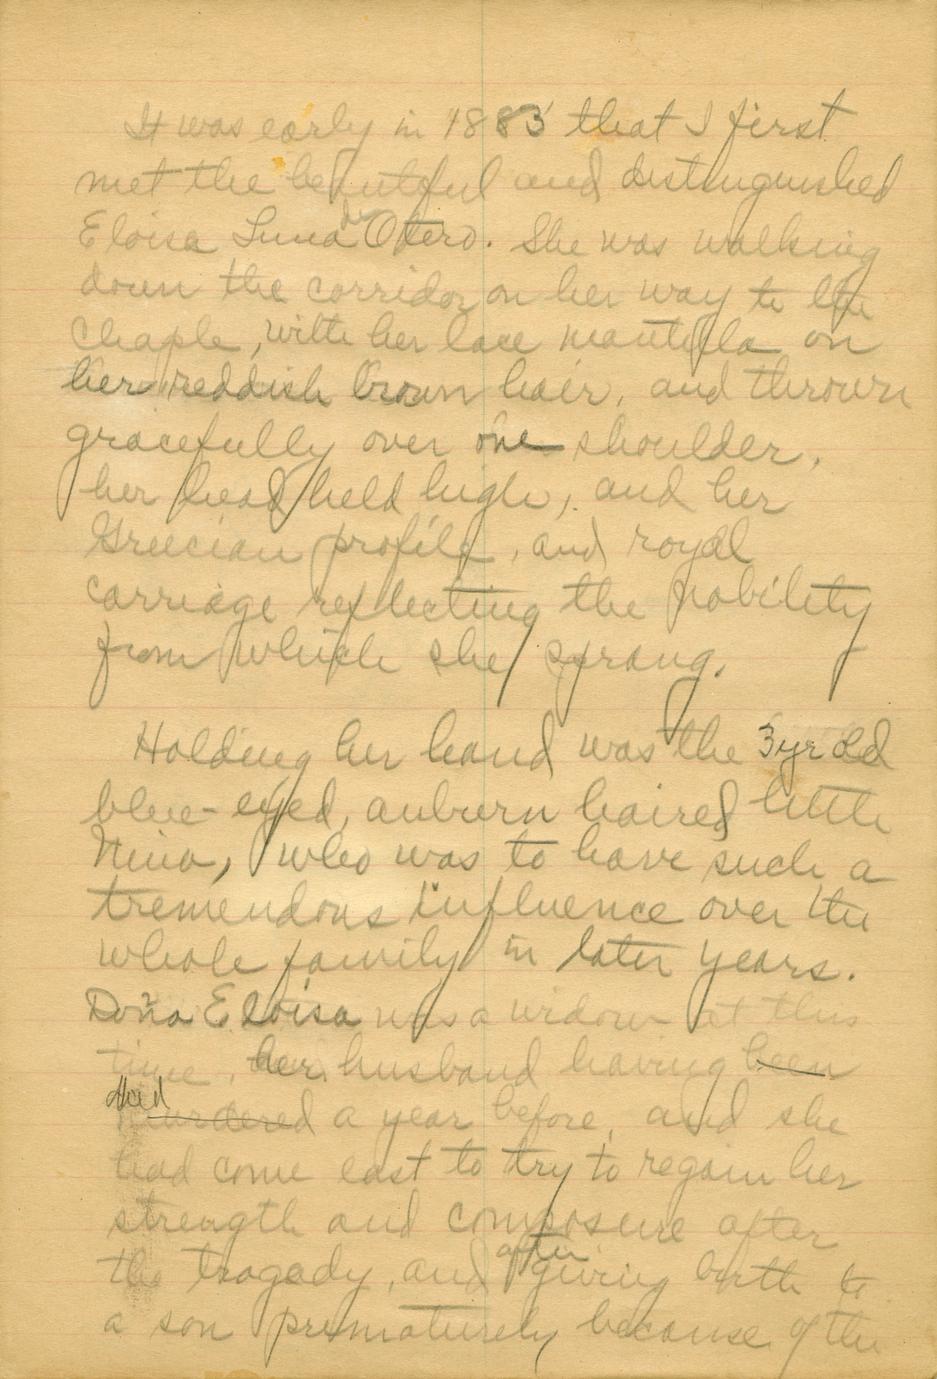 It was early in 1883 that I first
met the beautiful and distinguished
Eloisa Luna de Otero. She was walking
down the corridor on her way to the
Chaple, with her lace mantilla on
her reddish brown hair, and thrown
gracefully over one shoulder,
her head held high, and her
Greecian profile, and royal
carriage reflecting the nobility
from which she sprang.
Holding her hand was the 3 yr old
blue-eyed, auburn haired little
Nina, who was to have such a
tremendous influence over the
whole family in later years.
Doña Eloisa was a widow at this
time, her husband having been
died
murdered a year before, and she
had come east to try to regain her
strength and composure after
the tragedy, and after giving birth to
a son prematurely because of the